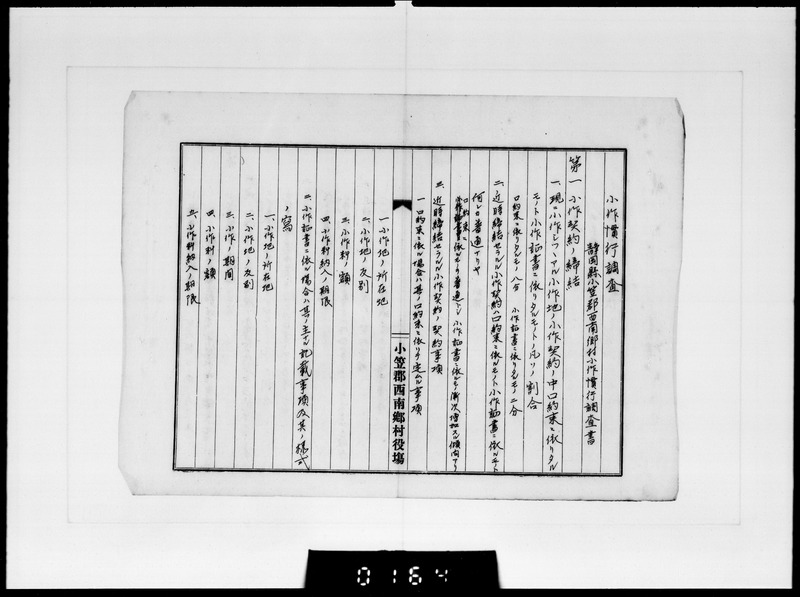 小作慣行調査
静岡縣小笠郡西南郷村小作慣行調査書
第一 小作契約ノ締結
一、現ニ小作シツヽアル小作地ノ小作契約ノ中口約束ニ依リタル
モノト小作証書ニ依リタルモノトノ凡ソノ割合
口約束ニ依リタルモノ八分 小作証書ニ依リタルモノ二分
二、近時締結セラルル小作契約ハ口約束ニ依ルモノト小作証書ニ依ルモノト
何レカ普通ナリヤ
口約束ニ依ルモノ普通ナレ𪜈 小作証書ニ依ルモノ漸次増加スル傾向アリ
三、近時締結セラルル小作契約ノ契約事項
一、口約束ニ依ル場合ハ其ノ口約束ニ依リテ定ムル事項
小笠郡西南郷村役場
一、小作地ノ所在地
二、小作地ノ反別
三、小作料ノ額
四、小作料納入ノ期限
二、小作証書ニ依ル場合ハ其ノ主ナル記載事項及其ノ様式
ノ寫
一、小作地ノ所在地
二、小作地ノ反別
三、小作ノ期間
四、小作料ノ額
五、小作料納入ノ期限
0164